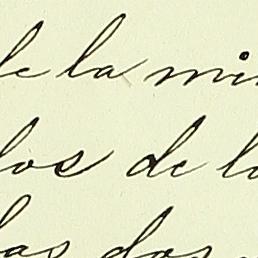 de la mi
los de lo
las dos